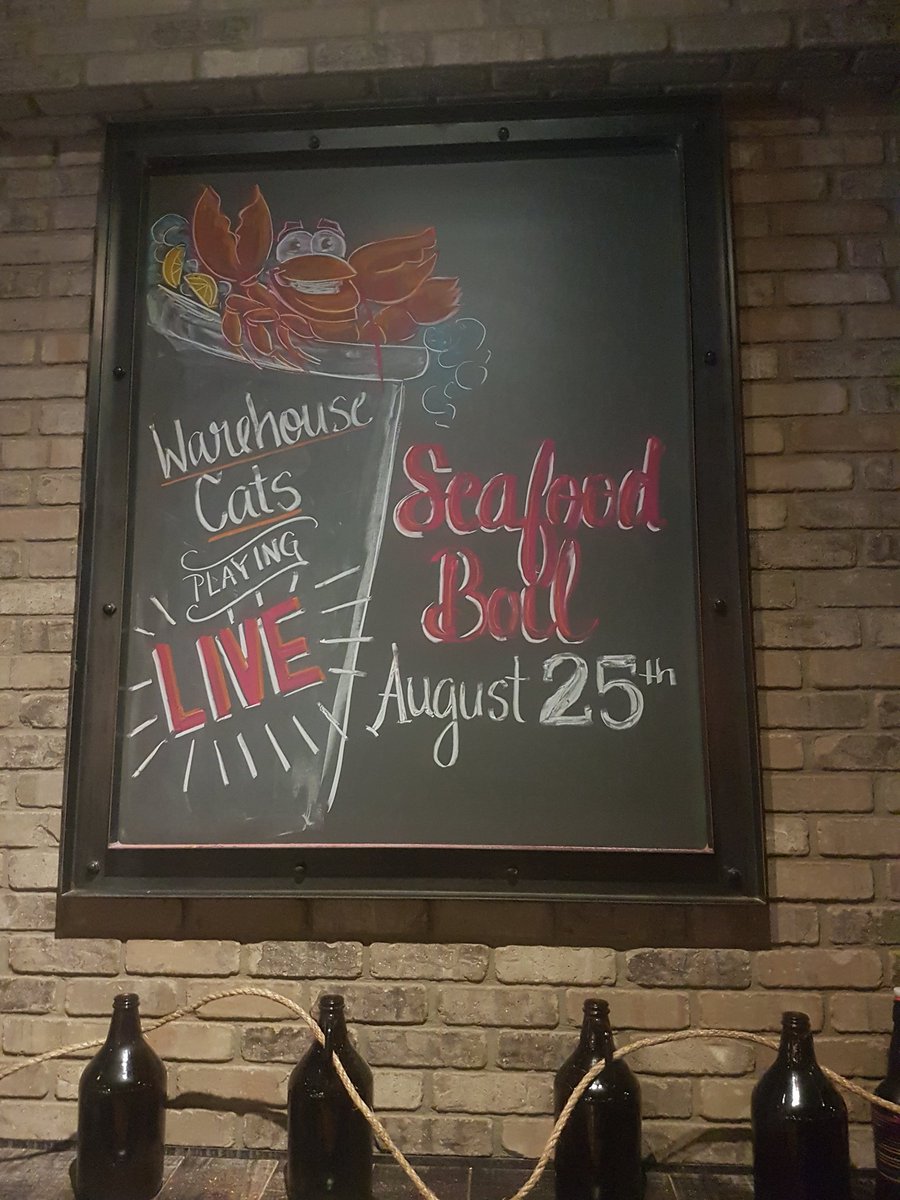 Warehouse
Cats
PLAYING
LIVE
Seafood
Boil
August 25th